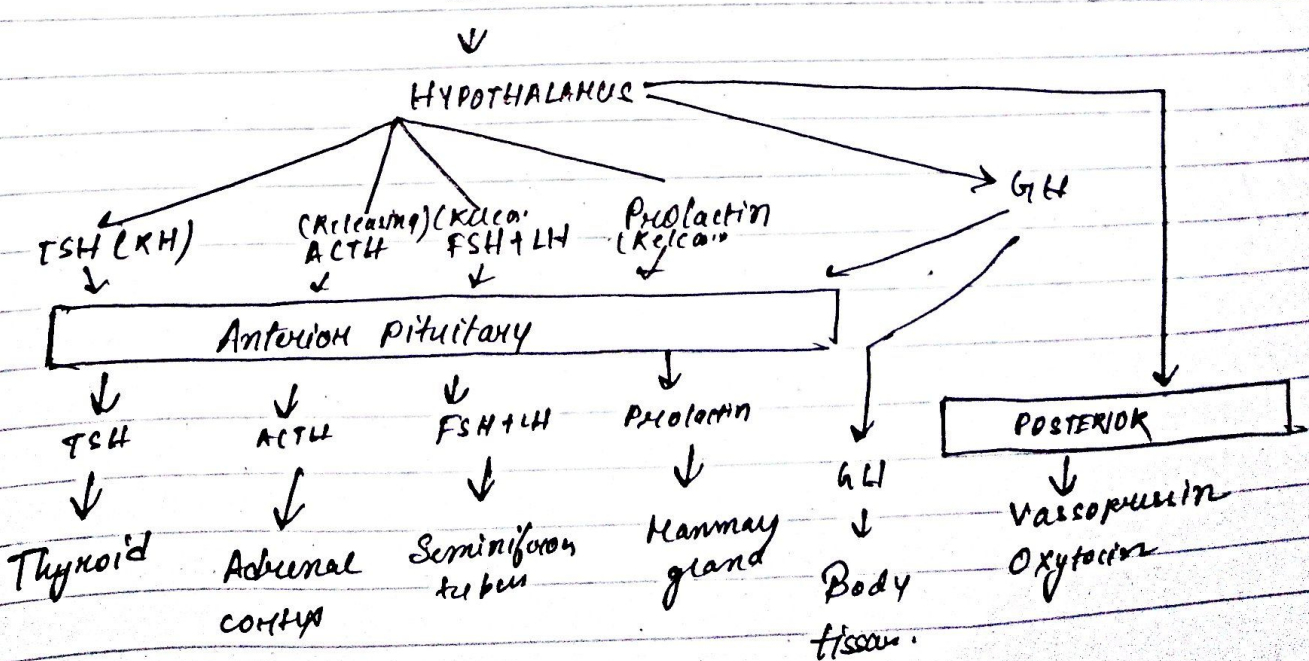 HYPOTHALAMUS
GH
TSH (RH)
(Releasing)
ACTH
(Relea.
FSH+LH
Prolactin
(Relea..
Anterior Pituitary
TSH
ACTH
FSH+LH
Prolactin
GH
POSTERIOR
Thyroid
Adrenal
cortex
Seminiferous
tubes
Mammay
gland
Body
tissue.
Vassopressin
Oxytocin